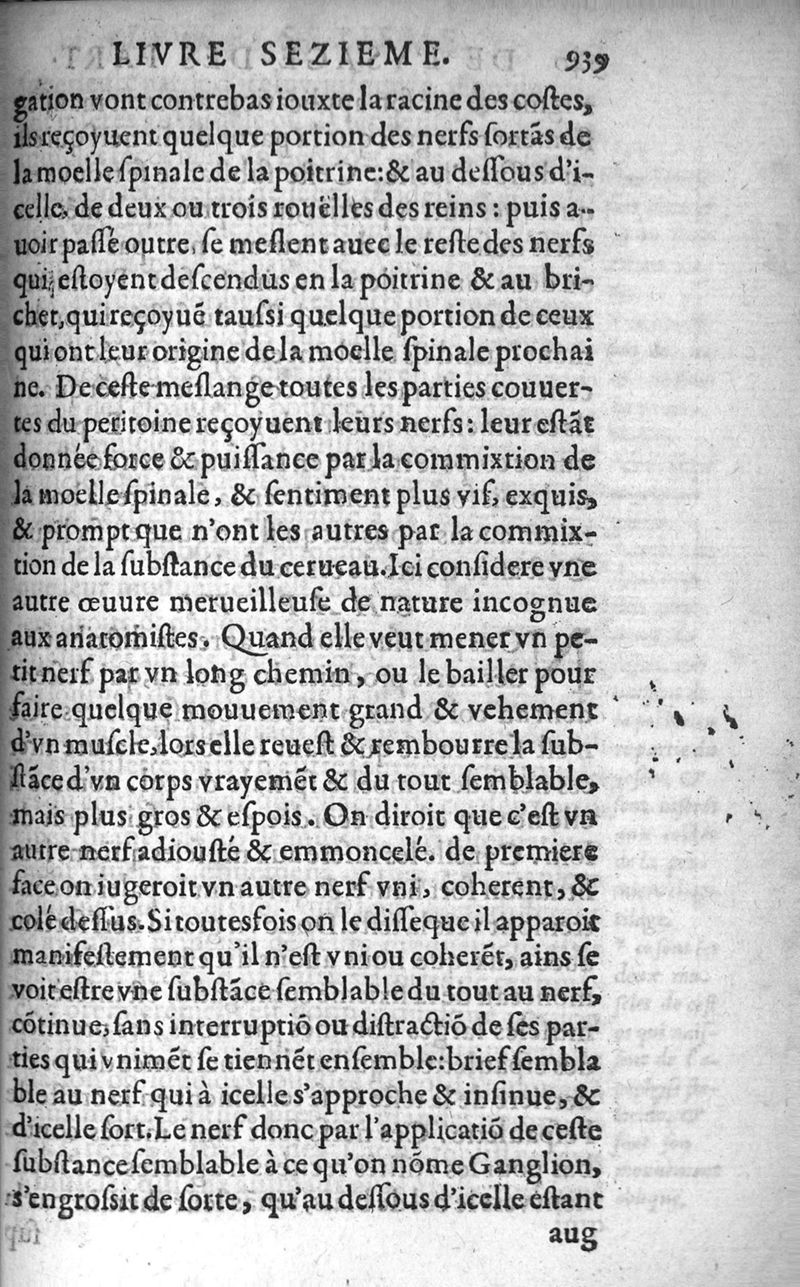 LIVRE SEZIEME. 939
gation vont contrebas iouxte la racine des coſtes,
ils reçoyuent quelque portion des nerfs ſortãs de
la moelle ſpinale de la poitrine:& au deſſous d'i-
celle, de deux ou trois rouëlles des reins : puis a-
uoir paſſé outre, ſe meſlent auec le reſte des nerfs
qui, eſtoyent deſcendus en la poitrine & au bri-
chet, qui reçoyuẽ tauſsi quelque portion de ceux
qui ont leur origine de la moelle ſpinale prochai
ne. De ceſte meſlange toutes les parties couuer-
tes du peritoine reçoyuent leurs nerfs : leur eſtãt
donnée force & puiſſance par la commixtion de
la moelle ſpinale, & ſentiment plus vif, exquis,
& prompt que n'ont les autres par la commix-
tion de la ſubſtance du cerueau. Ici conſidere vne
autre œuure merueilleuſe de nature incognue
aux anatomiſtes. Quand elle veut mener vn pe-
tit nerf par vn long chemin, ou le bailler pour
faire quelque mouuement grand & vehement
d'vn muſcle, lors elle reueſt & rembourre la ſub-
ſtãce d'vn corps vrayemẽt & du tout ſemblable,
mais plus gros & eſpois. On diroit que c'eſt vn
autre nerf adiouſté & emmoncelé. de premiere
face on iugeroit vn autre nerf vni, coherent, &
colé deſſus. Si toutesfois on le diſſeque il apparoit
manifeſtement qu'il n'eſt vni ou coherẽt, ains ſe
voit eſtre vne ſubſtãce ſemblable du tout au nerf,
cõtinue, ſans interruptiõ ou diſtractiõ de ſes par-
ties qui vnimẽt ſe tiennẽt enſemble: brief ſembla
ble au nerf qui à icelle s'approche & inſinue, &
d'icelle ſort. Le nerf donc par l'applicatiõ de ceſte
ſubſtance ſemblable à ce qu'on nõme Ganglion,
s'engroſsit de ſorte, qu'au deſſous d'icelle eſtant
aug